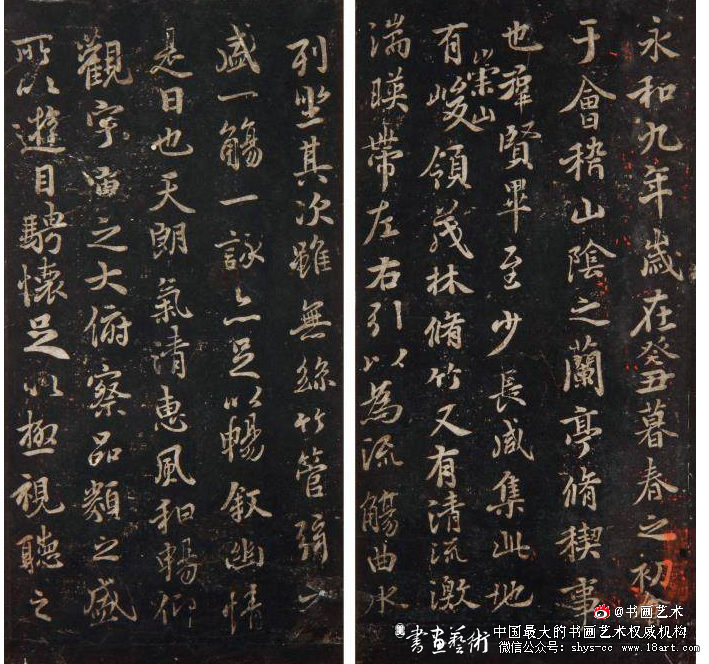 永和九年歲在癸丑暮春之初
于會稽山陰之蘭亭脩稧事
也羣賢畢至少長咸集此地
有崇山峻領茂林脩竹又有清流激
湍暎帶左右引以為流觴曲水
列坐其次雖無絲竹管弦之
盛一觴一詠亦足以暢敘幽情
是日也天朗氣清惠風和暢仰
觀宇宙之大俯察品類之盛
所以遊目騁懷足以極視聽之
@书画艺术
美 書畫藝術
中国最大的书画艺术权威机构
微信公众号: shys-cc www.18art.com